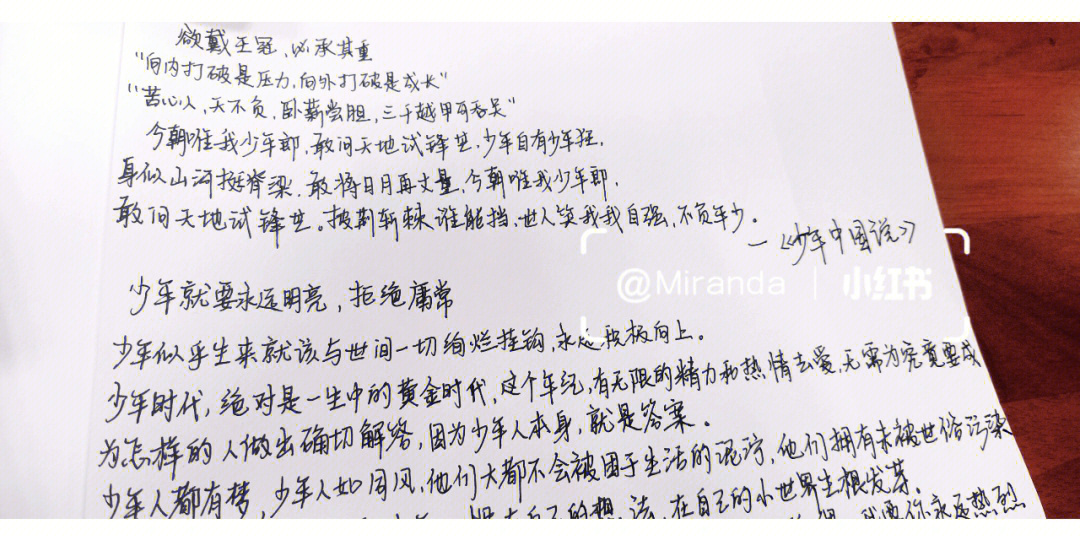 欲戴王冠，必承其重
"向内打破是压力，向外打破是成长"
"苦心人，天不负，卧薪尝胆，三千越甲可吞吴"
今朝唯我少年郎，敢问天地试锋芒，少年自有少年狂，
身似山河挺脊梁，敢将日月再丈量，今朝唯我少年郎，
敢问天地试锋芒。披荆斩棘谁能挡，世人笑我我自强，不负年少。
—《少年中国说》
@Miranda | 小红书
少年就要永远明亮，拒绝庸常
少年似乎生来就该与世间一切绚烂挂钩，永远积极向上。
少年时代，绝对是一生中的黄金时代，这个年纪，有无限的精力和热情去爱，无需为究竟要成
为怎样的人做出确切解答，因为少年人本身，就是答案。
少年人都有梦，少年人如同风，他们大都不会被困于生活的泥泞，他们拥有未被世俗污染
自己的想法，在自己的小世界生根发芽。
我要你永远热烈